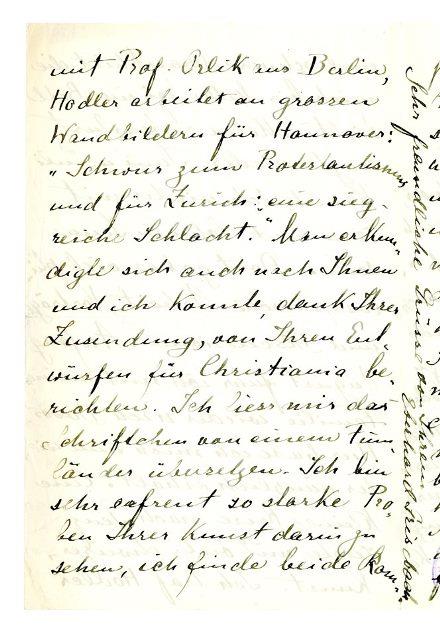 mit Prof. Orlik aus Berlin,
Hodler arbeitet an grossen
Wandbildern für Hannover:
„Schwur zum Protestantismus
und für Zürich: „eine sieg-
reiche Schlacht.“ Man erkun-
digte sich auch nach Ihnen
und ich konnte, dank Ihrer
Zusendung, von Ihren Ent-
würfen für Christiania be-
richten. Ich liess mir das
Schriftchen von einem Finn-
länder übersetzen. Ich bin
sehr erfreut so starke Pro-
ben Ihrer Kunst darin zu
sehen, ich finde beide Kom-
Sehr freundliche Grüsse von Ihrem
Eberhard